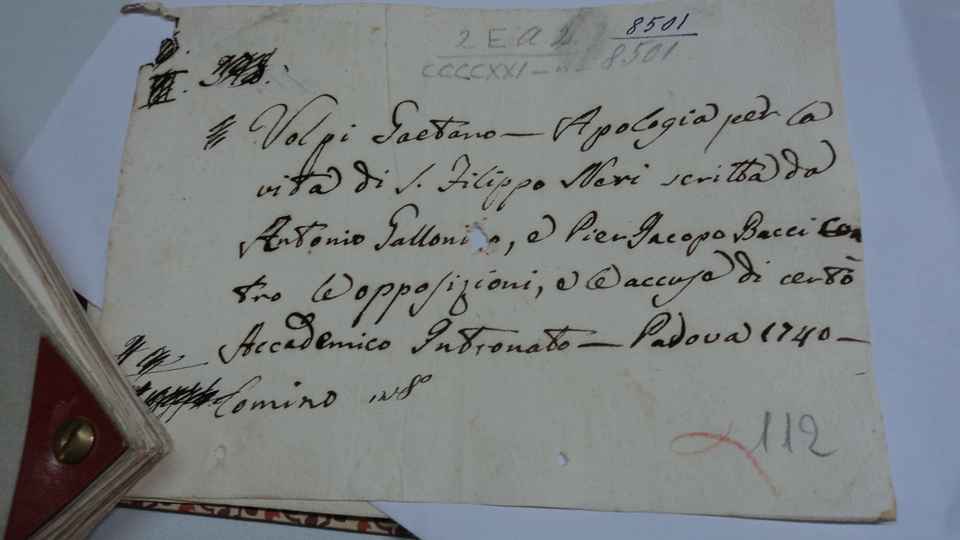 8501
2 E A 2 8501
CCCCXXI
Volpi Gaetano — Apologia per la
vita di S. Filippo Neri scritta da
Antonio Gallonio, e Pier Jacopo Bacci con
tro le opposizioni, e le accuse di certo
Accademico Intronato — Padova 1740 —
Comino in 8º
112